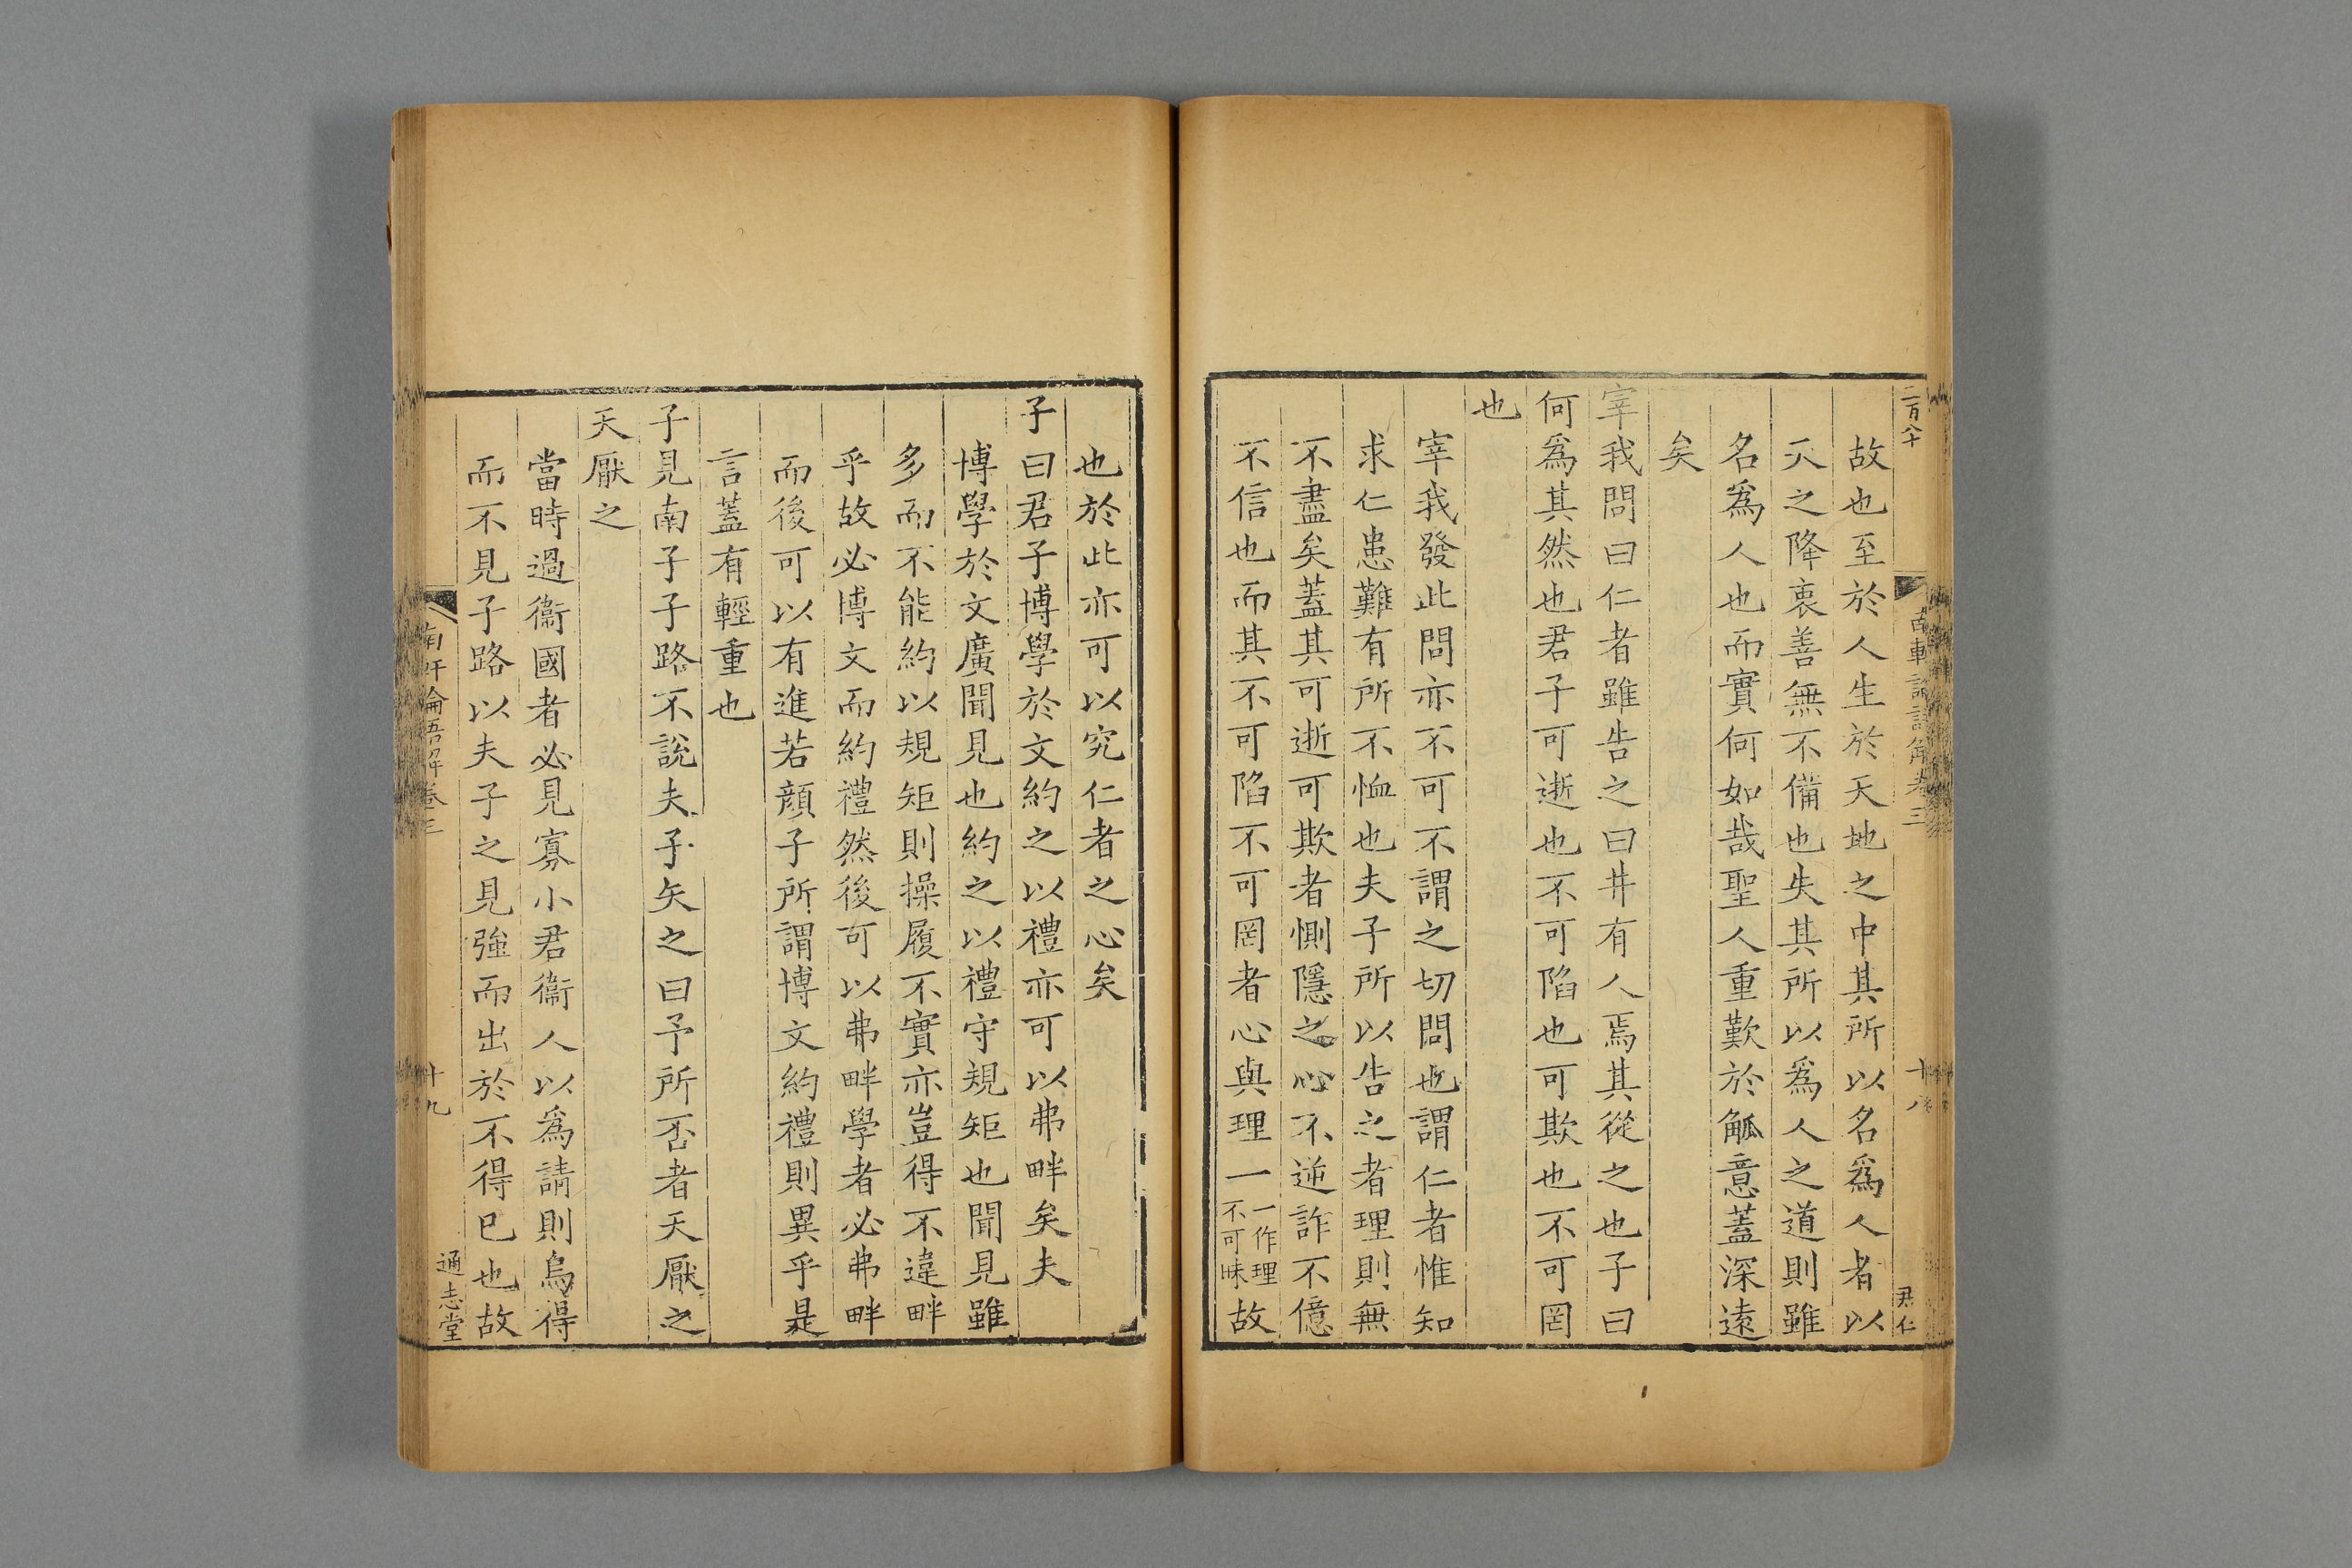 二百八十
卷三
十八
君仁
故也至於人生於天地之中其所以名爲人者以
天之降衷善無不備也失其所以爲人之道則雖
名爲人也而實何如哉聖人重歎於觚意蓋深遠
矣
宰我問曰仁者雖告之曰井有人焉其從之也子曰
何爲其然也君子可逝也不可陷也可欺也不可罔
也
宰我發此問亦不可不謂之切問也謂仁者惟知
求仁患難有所不恤也夫子所以告之者理則無
不盡矣蓋其可逝可欺者惻隱之心不逆詐不億
不信也而其不可陷不可罔者心與理一一作理不可昧故
也於此亦可以究仁者之心矣
子曰君子博學於文約之以禮亦可以弗畔矣夫
博學於文廣聞見也約之以禮守規矩也聞見雖
多而不能約以規矩則操履不實亦豈得不違畔
乎故必博文而約禮然後可以弗畔學者必弗畔
而後可以有進若顏子所謂博文約禮則異乎是
言蓋有輕重也
子見南子子路不說夫子矢之曰予所否者天厭之
天厭之
當時過衞國者必見寡小君衞人以爲請則烏得
而不見子路以夫子之見強而出於不得已也故
南軒論語解卷三
十九
通志堂